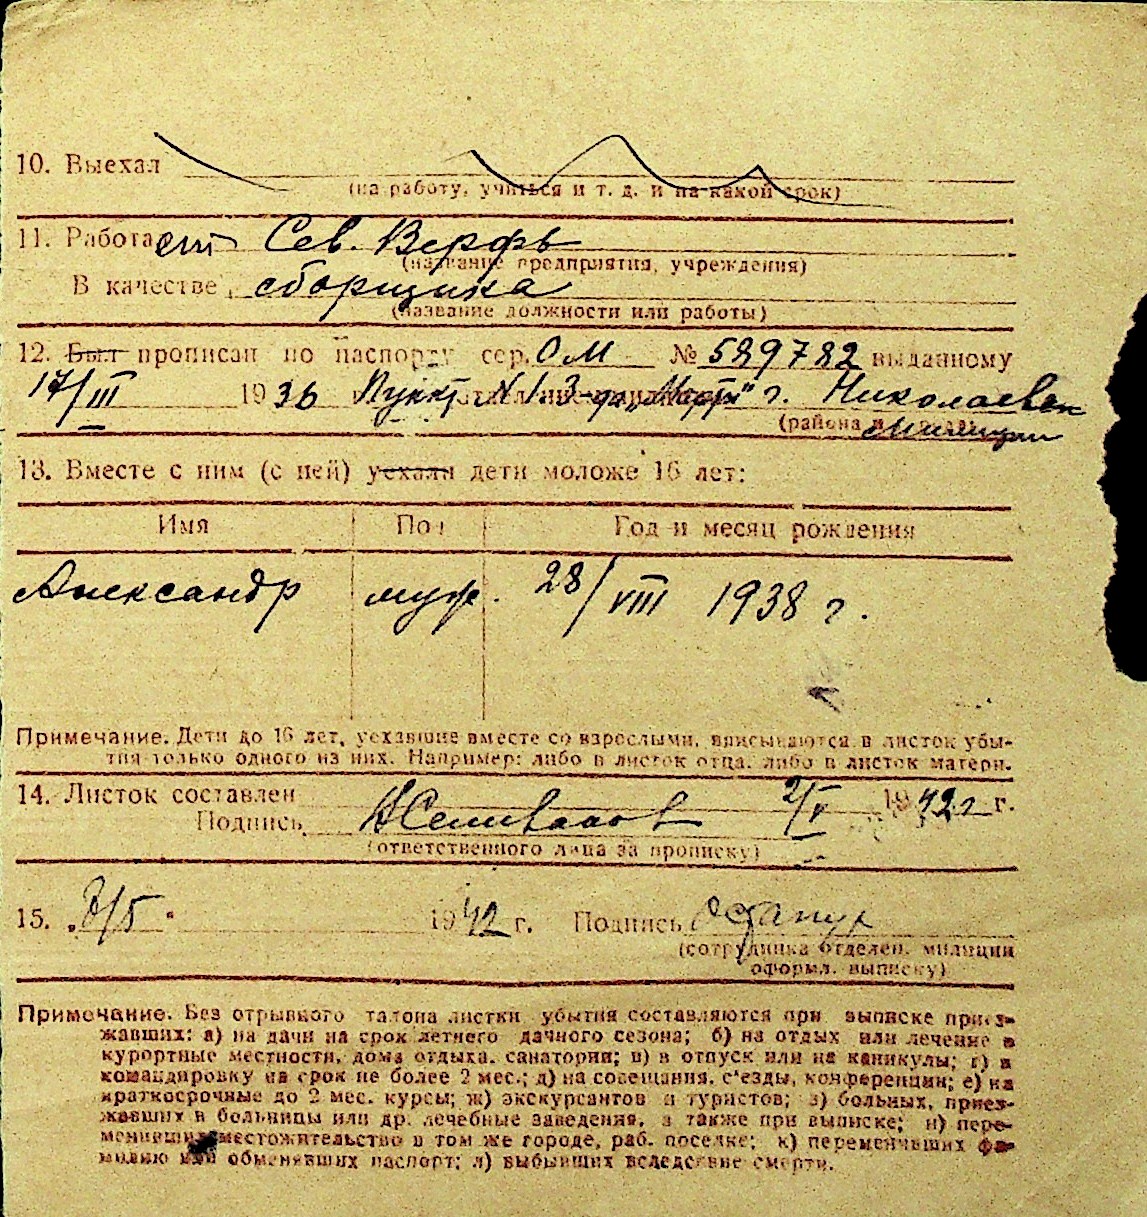 10. Выехал
(на работу, учиться и т. д. и на какой срок)
11. Работает Сев. Верфь
(название предприятия, учреждения)
В качестве сборщика
(название должности или работы)
12. Был прописан по паспорту сер. ОМ № 589782 выданному
17/III 1936 Пункт N 1 З-да „Марти" г. Николаевск
(района и милиции
13. Вместе с ним (с ней) уехали дети моложе 16 лет:
Имя Пол Год и месяц рождения
Александр муж. 28/VIII 1938 г.
Примечание. Дети до 16 лет, уехавшие вместе со взрослыми, вписываются в листок убы-
тия только одного из них. Например: либо в листок отца, либо в листок матери.
14. Листок составлен 2/V 1942 г. г.
Подпись Селиванов
(ответственного лица за прописку)
15. 8/5 1942 г. Подпись
(сотрудника отделен. милиции
оформл. выписку)
Примечание. Без отрывного талона листки убытия составляются при выписке приез-
жавших: а) на дачи на срок летнего дачного сезона; б) на отдых или лечение в
курортные местности, дома отдыха, санатории; в) в отпуск или на каникулы; г) в
командировку на срок не более 2 мес.; д) на совещания, с'езды, конференции; е) на
краткосрочные до 2 мес. курсы; ж) экскурсантов и туристов; з) больных, приез-
жавших в больницы или др. лечебные заведения, а также при выписке; и) пере-
менивших местожительство в том же городе, раб. поселке; к) переменивших фа-
милию или обменявших паспорт; л) выбывших вследствие смерти.